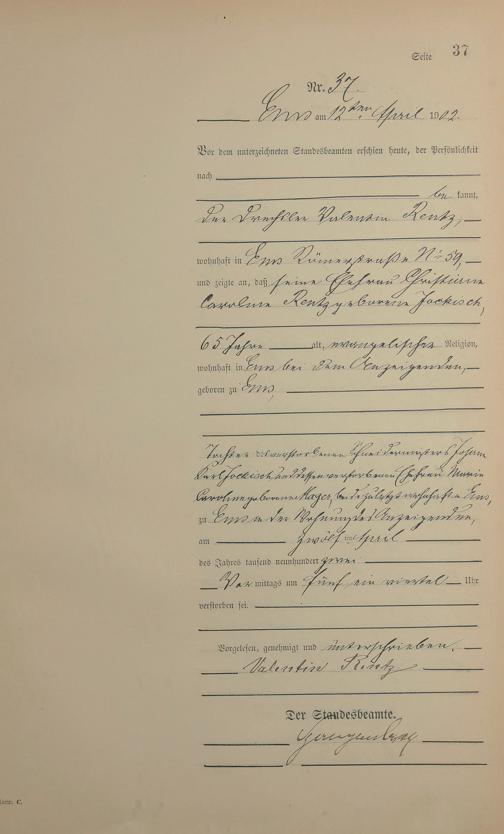 Seite 37
Nr. 37.
Ems am 12ten April 1902.
Vor dem unterzeichneten Standesbeamten erschien heute, der Persönlichkeit
nach
be kannt,
der Drechsler Valentin Rentz,
wohnhaft in Ems Römerstraße No 59,
und zeigte an, daß seine Ehefrau Christiane
Caroline Rentz geborene Jockisch,
65 Jahre alt, evangelischer Religion,
wohnhaft in Ems bei dem Anzeigenden,
geboren zu Ems,
Tochter des verstorbenen Schneidermeisters Johann
Karl Jockisch und dessen verstorbenen Ehefrau Marie
Caroline geborenen Mager, beide zuletzt wohnhaft in Ems,
zu Ems in der Wohnung des Anzeigenden,
am zwölften April
des Jahres tausend neunhundert zwei
Vor mittags um fünf ein viertel Uhr
verstorben sei.
Vorgelesen, genehmigt und unterschrieben.
Valentin Rentz
Der Standesbeamte.